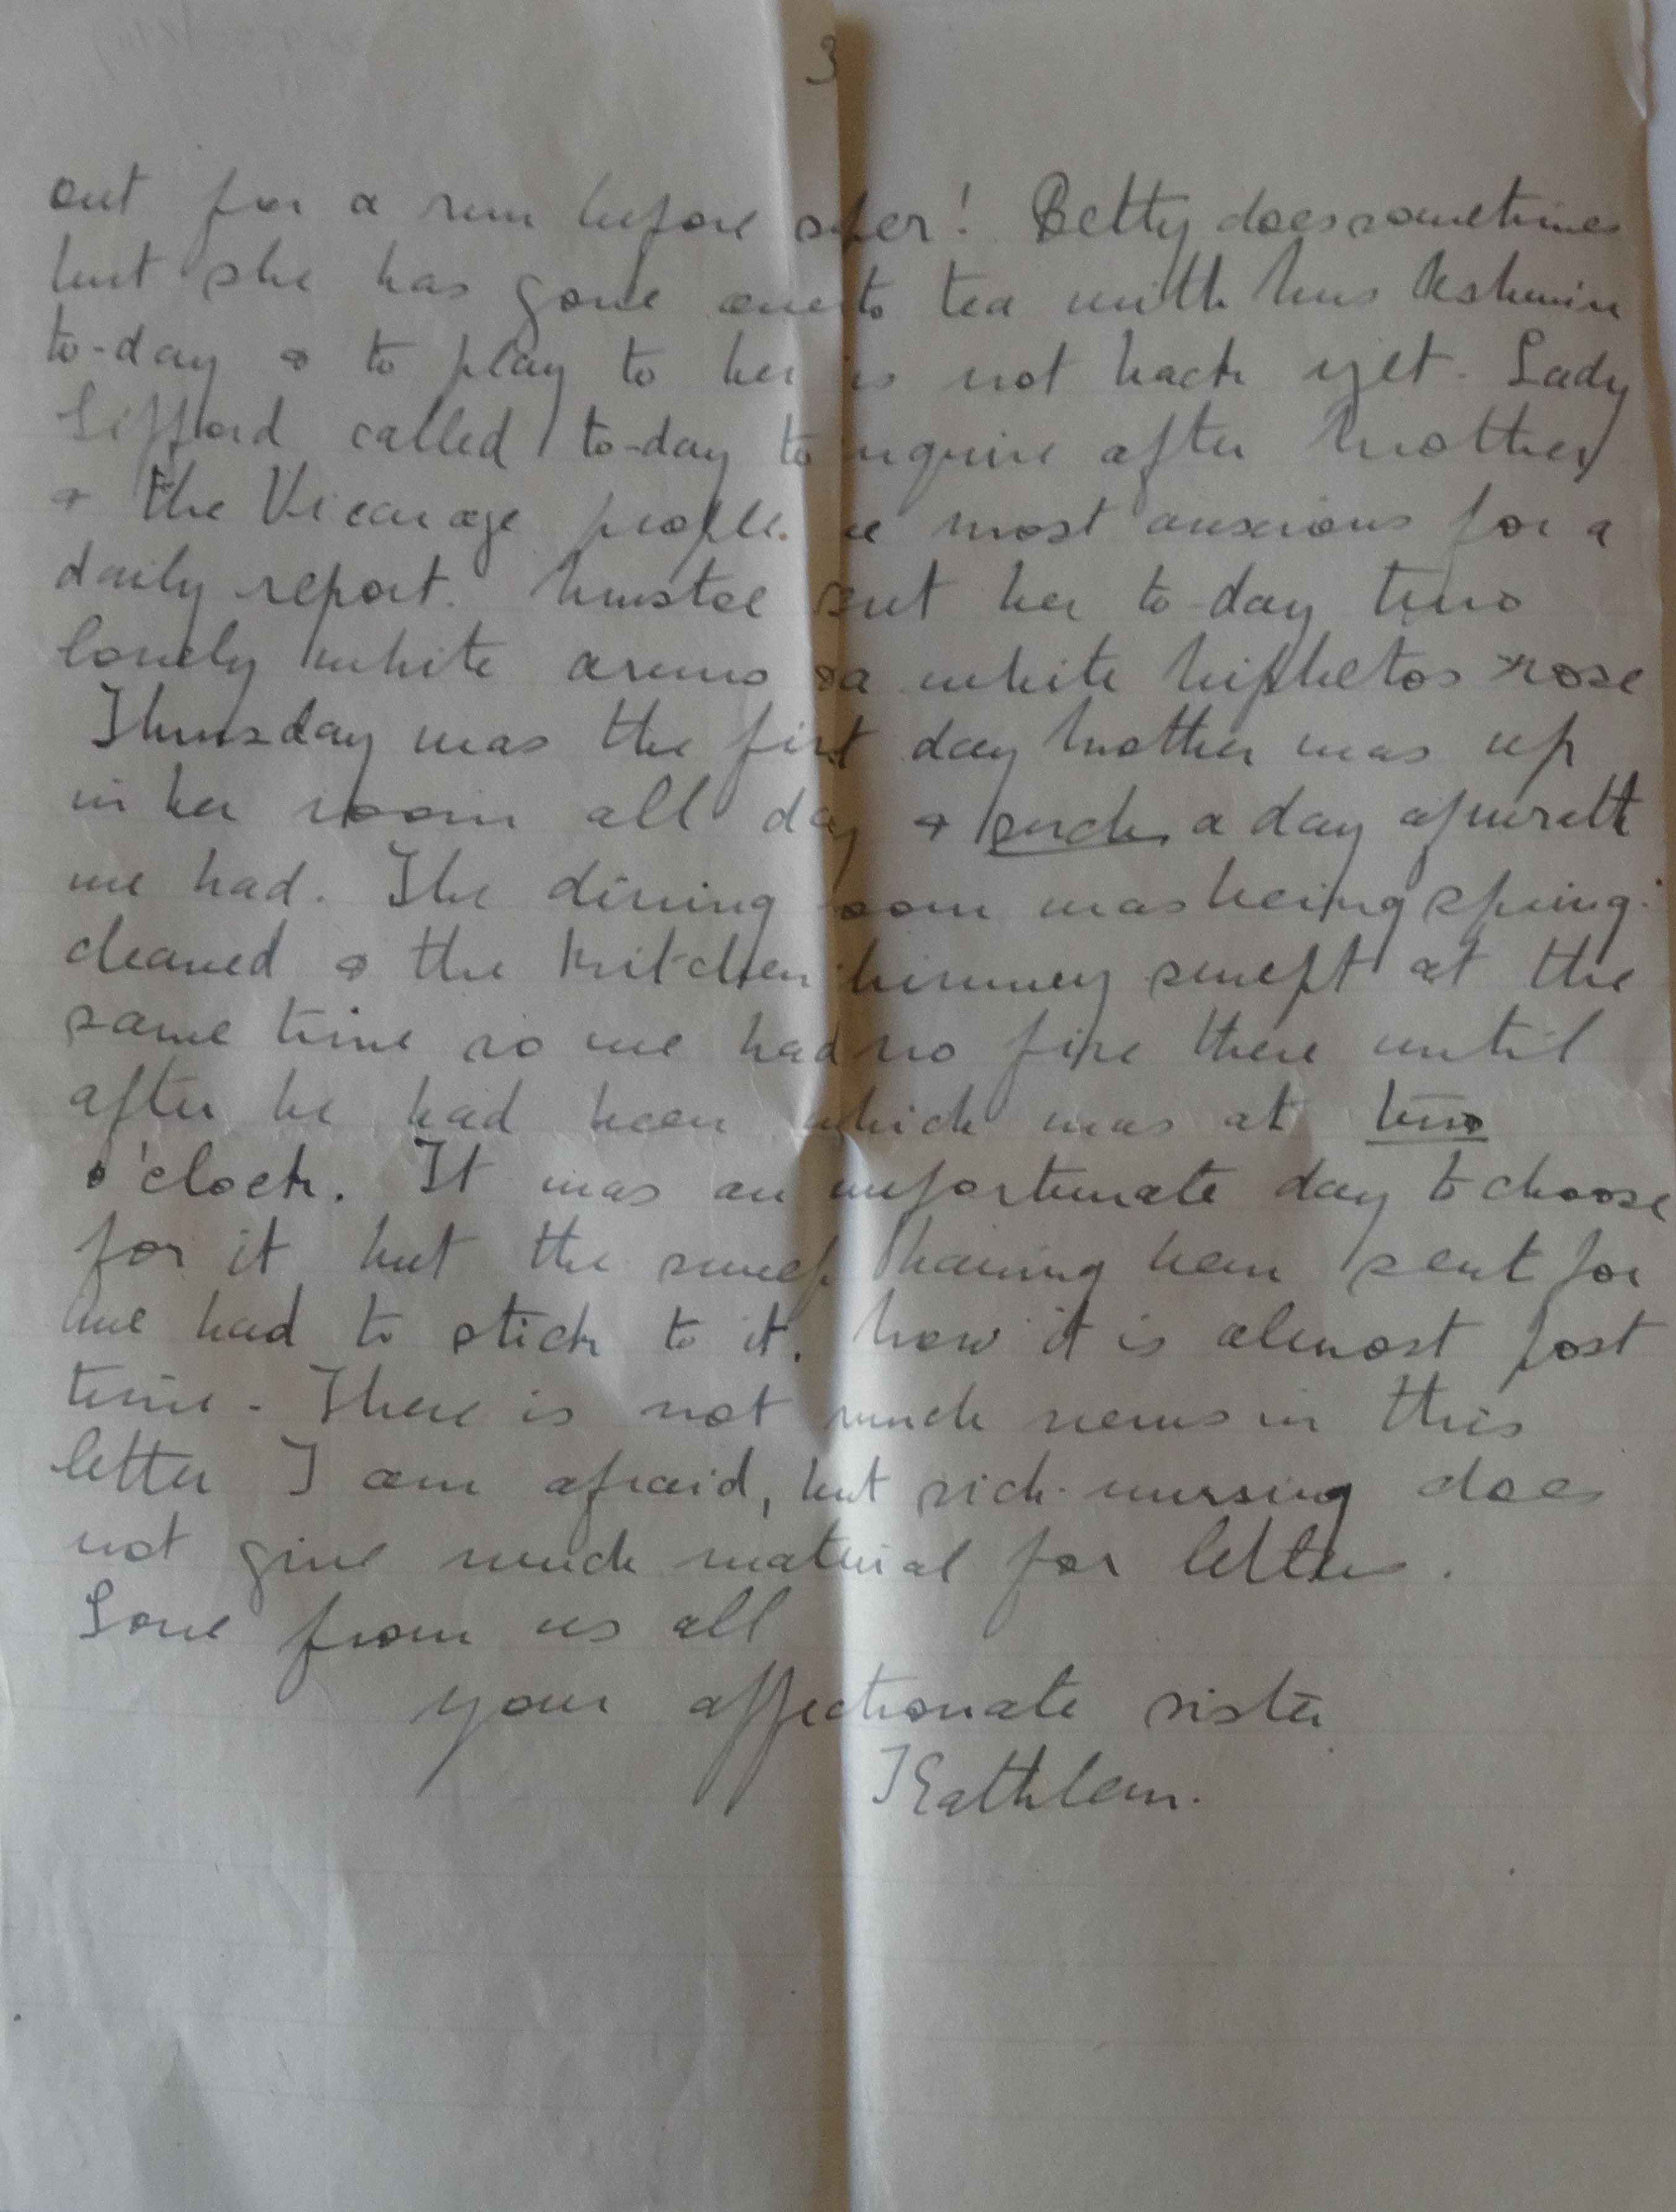 3
out for a run before supper! Betty does sometimes
but she has gone over to tea with Miss
to-day & to play to her & is not back yet. Lady
Gifford called to-day to inquire after Mother
& the Vicarage people are most anxious for a
daily report. sent her to-day two
lovely white arums & a white Niphetos rose
Thursday was the first day Mother was up
in her room all day & such a day of it
we had. The dining room was being spring-
cleaned & the kitchen chimney swept at the
same time so we had no fire there until
after he had been which was at two
o'clock. It was an unfortunate day to choose
for it but the sweep having been sent for
we had to stick to it. Now it is almost post
time - There is not much news in this
letter I am afraid, but sick-nursing does
not give much material for letters.
Love from us all
your affectionate sister
Kathleen.